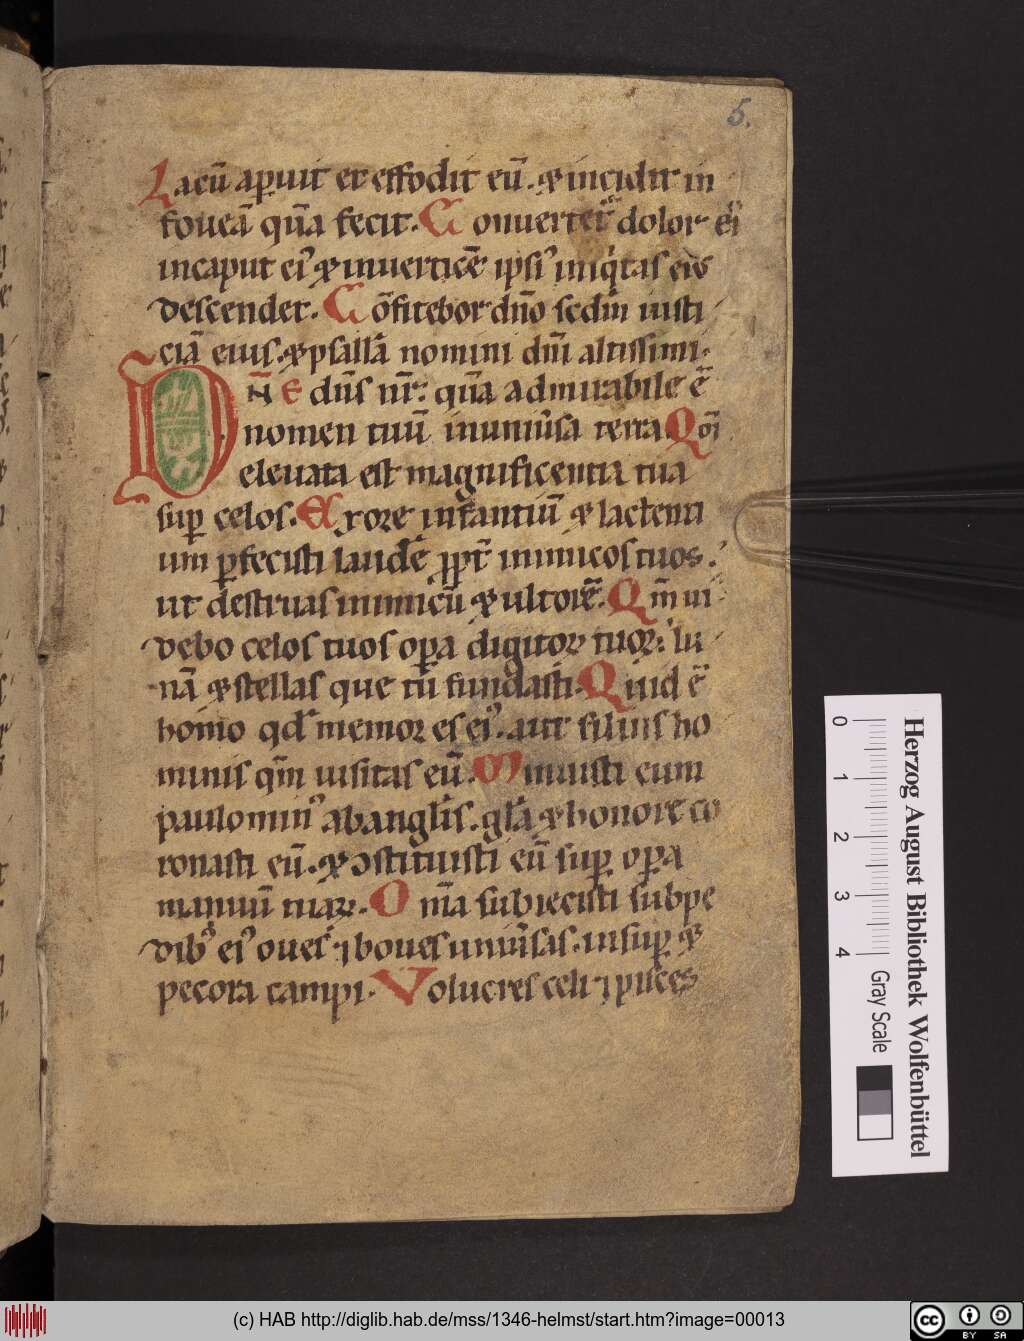 5.
Lacū apuit et effodit eū. et incidit in
foueā quā fecit. Conuertet dolor ei
in caput ei et inuerticē ipsi iniqitas eis
descendet. Cōfitebor dn̄o scdm iusti
ciā eius. et psallā nomini dn̄i altissimi.
DN̄E dn̄s nr̄. quā admirabile ē
nomen tuū inuniūsa terra. Qm̄
eleuata est magnificentia tua
sup celos. Ex ore infantiū et lactenti
um pfecisti laudē ppt̄ inimicos tuos.
ut destruas inimicū et ultorē. Qm̄ ui
debo celos tuos opa digitor tuor. lu
nā et stellas que tu fundasti. Quid ē
homo qd memor es ei. aut filius ho
minis qm̄ uisitas eū. Minuisti eum
paulomin abangl̄is. gl̄a et honore co
ronasti eū. et ɔstituisti eū sup opa
manuū tuar. Om̄a subiecisti subpe
dib ei oues ⁊ boues uniūsas. insup et
pecora campi. Volucres celi ⁊ pisces
Herzog August Bibliothek Wolfenbüttel
0 1 2 3 4 Gray Scale
(c) HAB http://diglib.hab.de/mss/1346-helmst/start.htm?image=00013
cc BY SA